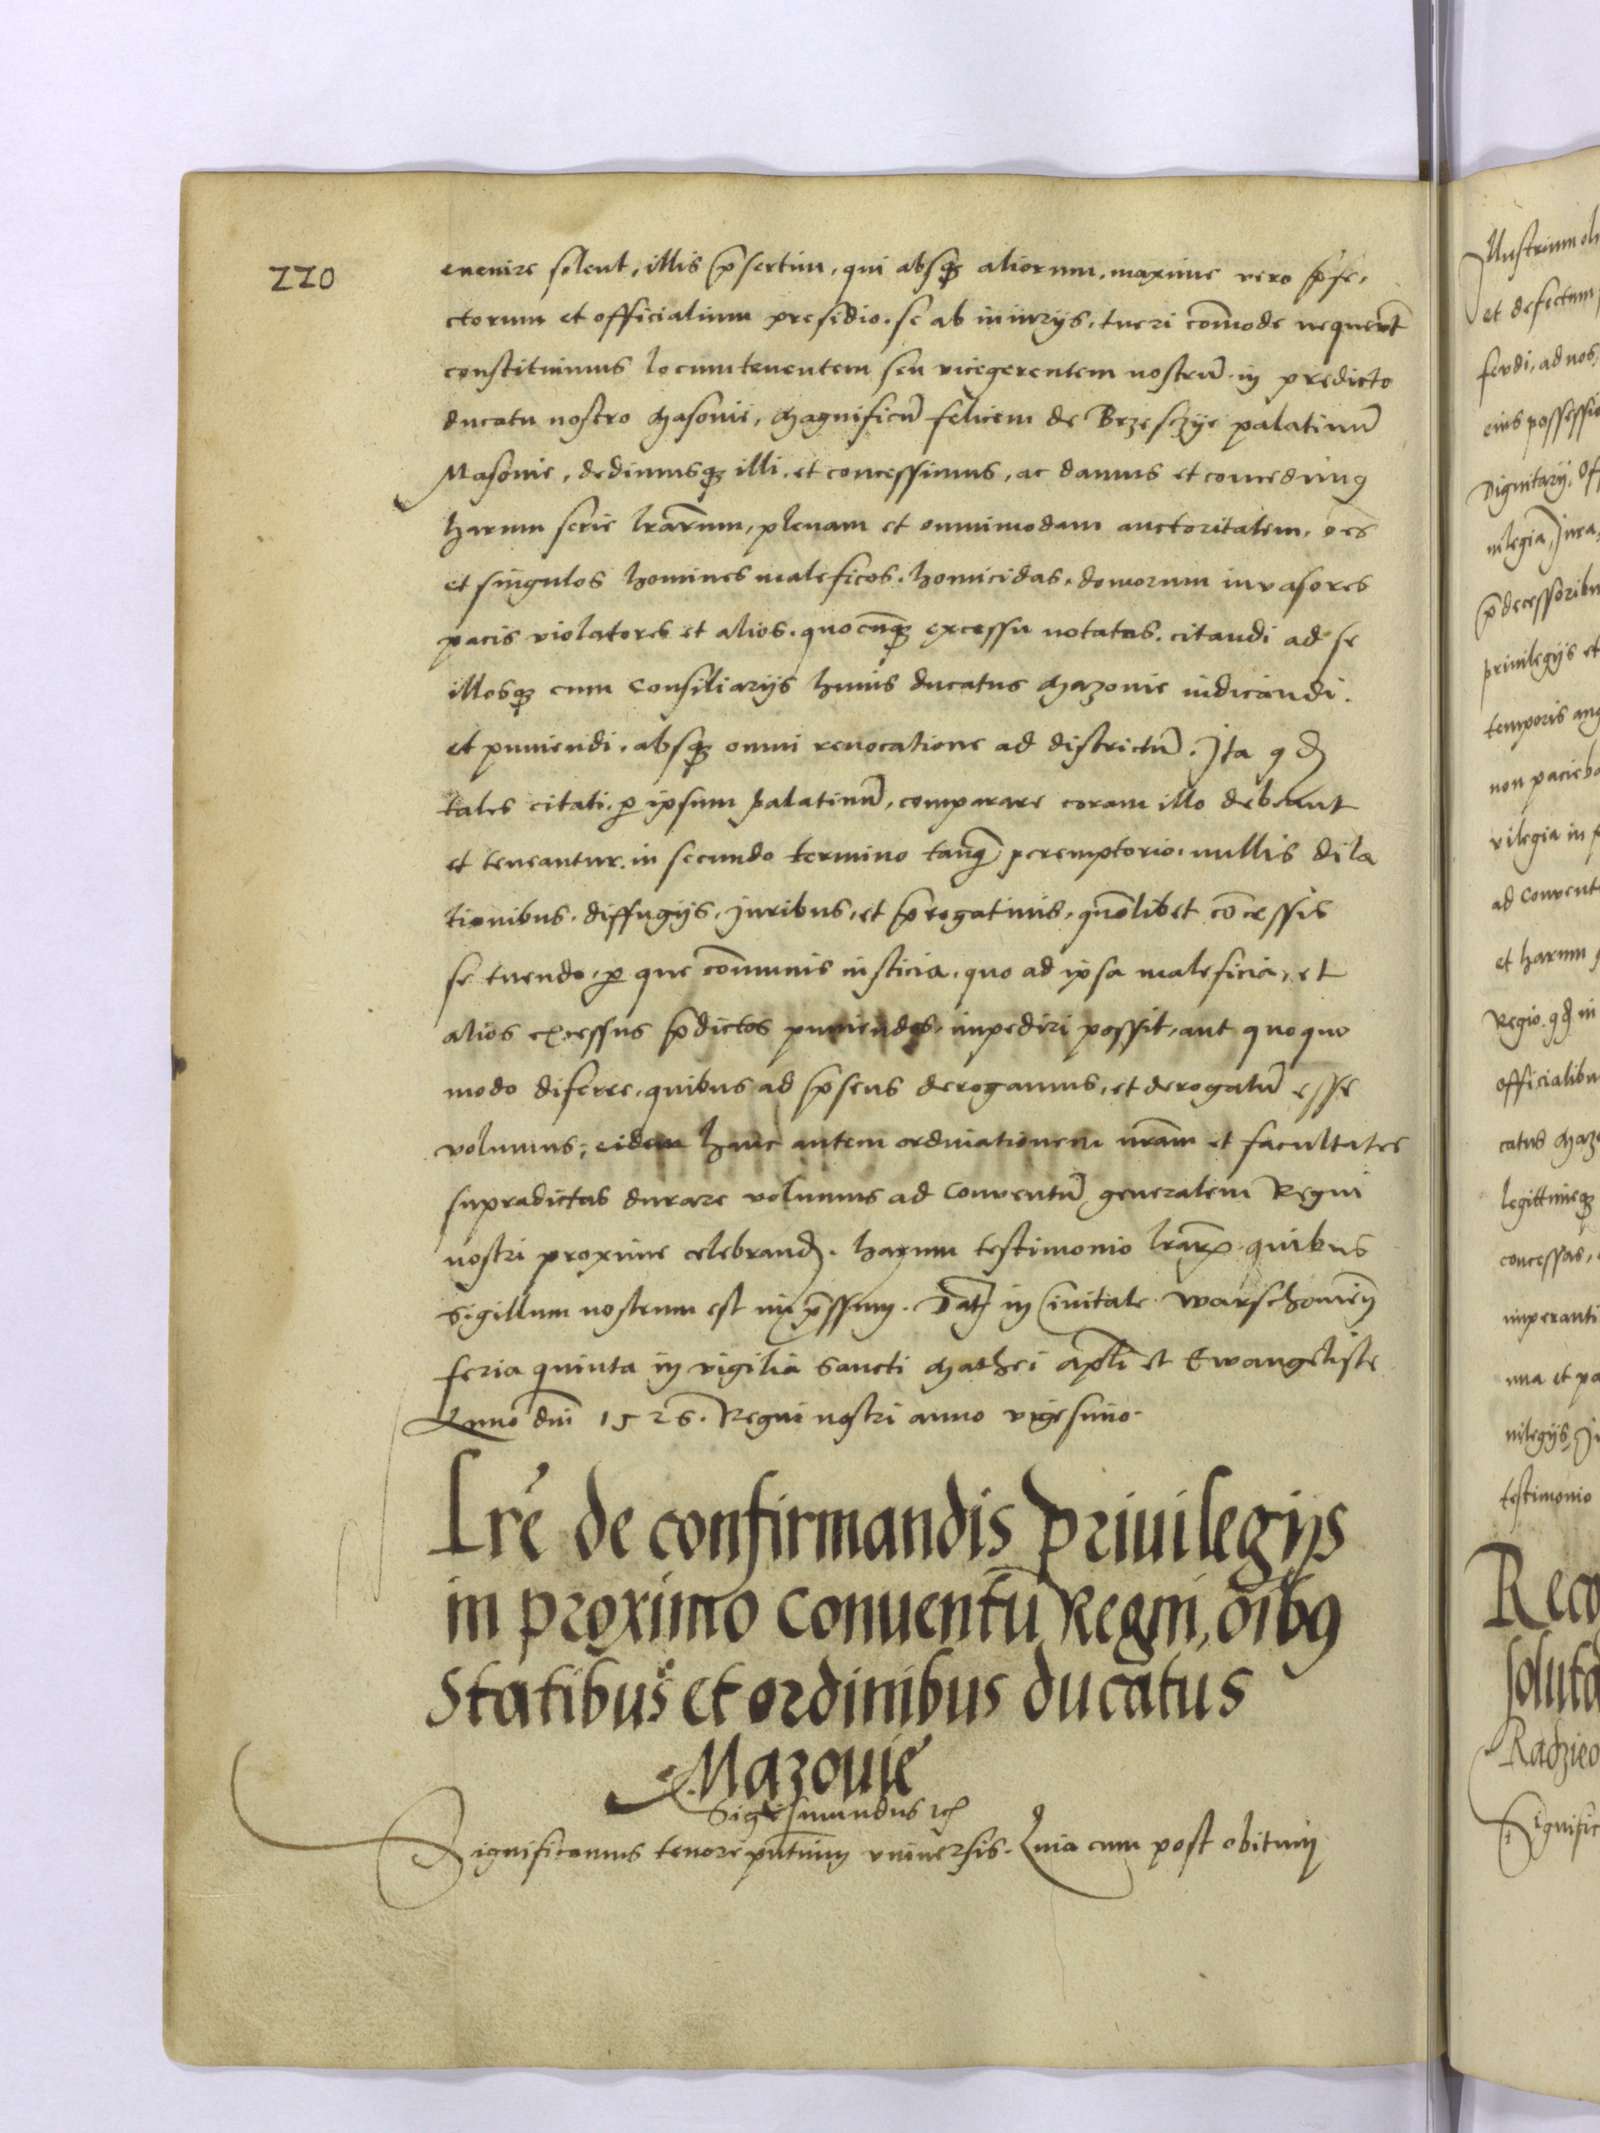 220
euenire solent, illis p̄sertim, qui absq₃ aliorum, maxime vero p̄fe,
ctorum et officialium presidio, se ab iniurijs, tueri com̄ode nequeūt
constituimus locumtenentem seu vicegerentem nostrū in predicto
ducatu nostro Masouie, Magnificū felicem de Brzesczye palatinū
Masouie, dedimusq₃ illi, et concessimus, ac damus et concedimꝰ
harum serie lr̄arum, plenam et omnimodam auctoritatem, oēs
et singulos homines maleficos, homicidas, domorum inuasores
pacis violatores et alios, quocūq₃ excessu notatos, citandi ad se
illosq₃ cum Consiliarijs huius ducatus Mazouie iudicandi.
et puniendi, absq₃ omni reuocatione ad districtū. Ita qđ
tales citati, ꝑ ipsum palatinū, comparare coram illo debeant
et teneantur, in secundo termino tanq̄ peremptorio, nullis dila
tionibus, diffugijs, Juribus, et p̄rogatiuis, quōlibet cōcessis
se tuendo, ꝑ que com̄unis iusticia, quo ad ipsa maleficia, et
alios excessus p̄dictos puniendos, impediri possit, aut quoquo
modo diferre, quibus ad p̄sens derogamus, et derogatū esse
volumus, eidem hanc autem ordinationem nr̄am et facultates
supradictas durare volumus ad Conuentū generalem Regni
nostri proxime celebrand. harum testimonio lr̄arꝝ quibus
Sigillum nostrum est imp̄ssum. Dat in Ciuitate Warschouień
feria quinta in vigilia Sancti Mathei ap̄li et Ewangeliste
Anno dn̄i 1526. Regni nostri anno vigesimo.
Lr̄e de confirmandis priuilegijs
in proximo Conuentu Regni, oībꝰ
Statibus et ordinibus ducatus
Mazouie
Sigismundus ꝛc̄
Significamus tenore pn̄tium vniuersis. Quia cum post obitum
Illustrium
et defectum
feudi, ad nos
eius possessio
Dignitarij, Of
uilegia, Jura,
p̄decessoribu
priuilegijs et
temporis ang
non pacieba
vilegia in
ad Conuent
et harum
Regio, qđ in
officialibu
catus Maz
legittimeq₃
concessas,
imperanti
una et pa
uilegijs, Ju
testimonio
Reco
soluta
Radzieo
Signific